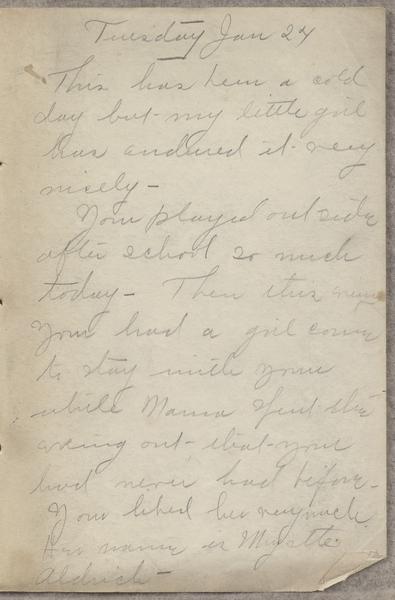 Tuesday Jan 24
This has been a cold
day but my little girl
has endured it very
nicely -
Your played out side
after school so much
today - Then this
Your had a girl come
to stay with your
while Mama spent the
evening out - that your
had never had before -
Your liked her very much
Her name is Myrtle
Aldrich -